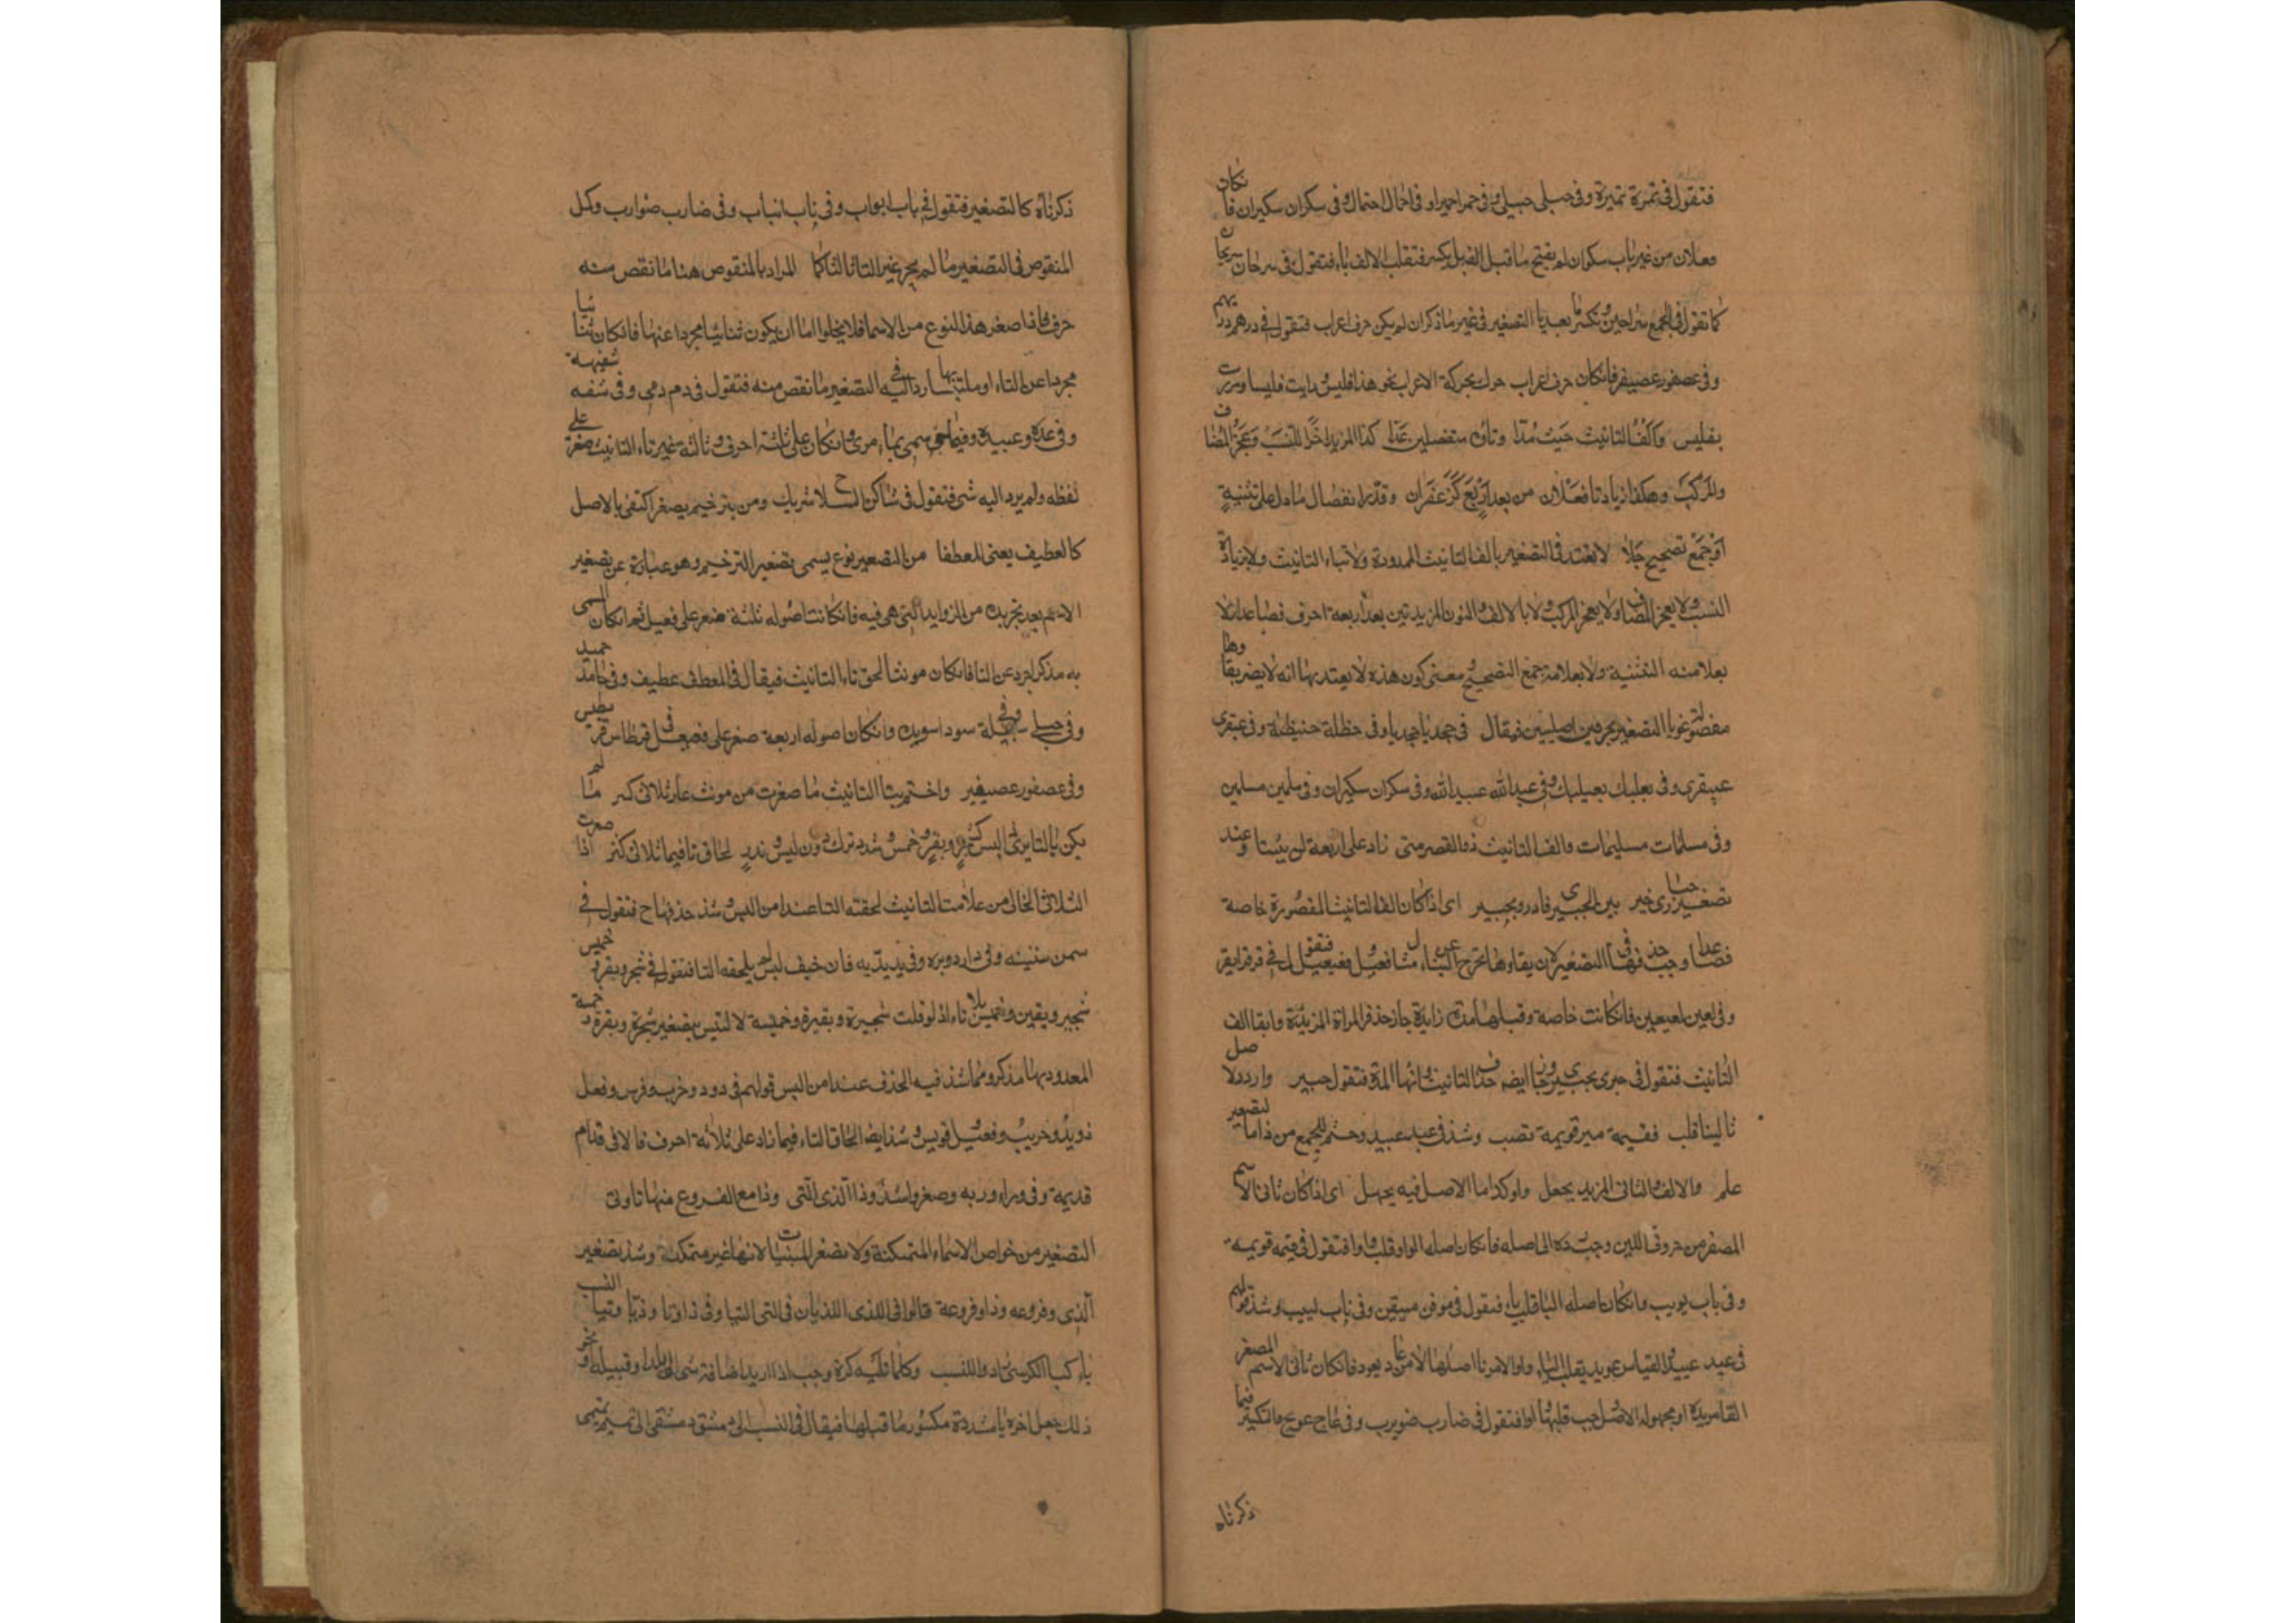 فتقول في تمرة تميرة وفي حبلى حبيلى وفي حمرا حميرا وفي اجمال اجيمال وفي سكران سكيران فانكان
فعلان من غير باب سكران لم يفتح ما قبل الفه بل يكسر فتقلب الالف ياء فتقول في سرحان سريحان
كما تقول في الجمع سراحين وتكسر ما بعد يا التصغير في غير ما ذكر ان لم يكن حرف اعراب فتقول في درهم دريهم
وفي عصفور عصيفر فانكان حرف اعراب حرك بحركة الاعراب نحو هذا فليس ورايت فليسا ومررت
بفليس وَاَلِفُ التانيث حَيْثُ مُدّا وتاؤه منفصلين عُدّا كذا المزيد اخرًا للنَسَبِ وعَجُز المُضاف
والمركب وهكذا زيادتا فعلان من بعد اربع كزعفران وقدّر انفصال ما دل على تثنية
او جمع تصحيح جلا لا يعتد في التصغير بالف التانيث الممدودة ولا بتاء التانيث ولا بزيادة
النسب ولا بعجز المضاف ولا بعجز المركب ولا بالالف والنون المزيدتين بعد اربعة احرف فصاعدا ولا
بعلامة التثنية ولا بعلامة جمع التصحيح معنى كون هذه لا يعتد بها انه لا يضر بقاوها
مفصولة عن يا التصغير بحرفين اصليين فيقال في حنظلة حنيظلة وفي عبقري
عبيقري وفي بعلبك بعيلبك وفي عبد الله عبيد الله وفي سكران سكيران وفي مسلمين مسلمين
وفي مسلمات مسليمات والف التانيث ذو القصر متى زاد على اربعة لن يثبتا وعند
تصغير حبارى خير بين الحبيرى فادر والحبير اى اذا كان الف التانيث المقصورة خاصة
فصاعدا وجب حذفها في التصغير لان بقاوها يخرج البناء عن مثال فعيعل وفعيعيل فتقول في قرقرا قريقر
وفي لعين لعيعين فانكانت خاصة وقبلها مدة زايدة جاز حذف المدة المزيدة وابقا الف
التانيث فتقول في حبارى حبيرى وجاز ايضا حذف الف التانيث وابقا المدة فتقول حبير واردد لاصل
ثانيا لينا قلب فقيمة صير قويمة تصب وشذ في عيد عييد وحتم للجمع من ذا ما لتصغير
علم والالف الثاني المزيد يجعل واوا كذا ما الاصل فيه يجهل اى اذا كان ثاني الاسم
المصغر من حروف اللين وجب رده الى اصله فانكان اصله الواو قلب واوا فتقول في قيمة قويمة
وفي باب بويب وانكان اصله اليا قلب ياء فتقول في موقن مييقن وفي ناب نييب وشذ قولهم
في عيد عييد والقياس عويد بقلب الياء واوا لانها اصلها لانه من عاد يعود فانكان ثاني الاسم المصغر
الفا مزيدة او مجهولة الاصل وجب قلبها واوا فتقول في ضارب ضويرب وفي عاج عويج والتكسير فيما
ذكرناه
ذكرناه كالتصغير فتقول في باب ابواب وفي ناب انياب وفي ضارب ضوارب وكمل
المنقوص في التصغير ما لم يحو غير التا ثالثا كما المراد بالمنقوص هنا ما نقص منه
حرف فاذا صغر هذا النوع من الاسما فلا يخلوا اما ان يكون ثنائيا مجردا عنها فانكان ثنائيا
مجردا عن التاء او ملتبسا بها رد اليه في التصغير ما نقص منه فتقول في دم دمي وفي شفه شفيهة
وفي عدة وعيدة وفي ما مسمى بماء موى وانكان على ثلثة احرف وثالثه غير تاء التانيث صغر على
لفظه ولم يرد اليه شى فتقول في شاك السلاح شويك ومن بترخيم يصغر اكتفى بالاصل
كالعطيف يعنى المعطفا من التصغير نوع يسمى تصغير الترخيم وهو عبارة عن تصغير
الاسم بعد تجريده من الزوايد التى هى فيه فانكانت اصوله ثلثة صغر على فعيل ثم انكان المسمى
به مذكرا جرد عن التا وانكان مونثا لحق تاء التانيث فيقال في المعطف عطيف وفي حامد حميد
وفي حبلى حبيلة وفي سودا سويدة وانكان اصوله اربعة صغر على فعيعل في قرطاس قريطس
وفي عصفور عصيفير واختم بتا التانيث ما صغرت من مونث عار ثلاثي كسن ما لم
يكن بالتا يرى ذا لبس كشجر وبقر وخمس وشذ ترك دون لبس وندر لحاق تا فيما ثلاثيا كثر اذا صغرت
الثلاثي الخالي من علامت التانيث لحقته التا عند امن اللبس وشذ حذفها ح فتقول في
سن سنينة وفي دار دويرة وفي يد يديه فان خيف لبس لم يلحقه التا فتقول في شجر وبقر وخمس
شجير وبقير وخميس بلا تاء اذ لو قلت شجيرة وبقيرة وخميسة لالتبس بتصغير شجرة وبقرة وخمسة
المعدود بها مذكر ومما شذ فيه الحذف عند امن اللبس قولهم في ذود وحرب وفرس ونعل
ذويد وحريب وقويس ونعيل وشذ ايضا الحاق التاء فيما زاد على ثلاثة احرف قالا في قدام
قديمة وفي وراء وريه وصغروا شذوذا الذى التى وذا مع الفروع منها تا وتى
التصغير من خواص الاسماء المتمكنة ولا تصغر المبنيات لانها غير متمكنة وشذ تصغير
الذى وفروعه وذا وفروعه قالوا في الذى اللذيان في التى اللتيا وفي ذا وتا وذيّا وتيا النسب
ياء كيا الكرسى زادوا للنسب وكلما تليه كسره وجب اذا اريد اضافة شى الى بلد او قبيلة او نحو
ذلك جعل اخره يا مشددة مكسورا ما قبلها فيقال في النسب الى دمشق دمشقى الى تميم تميمى